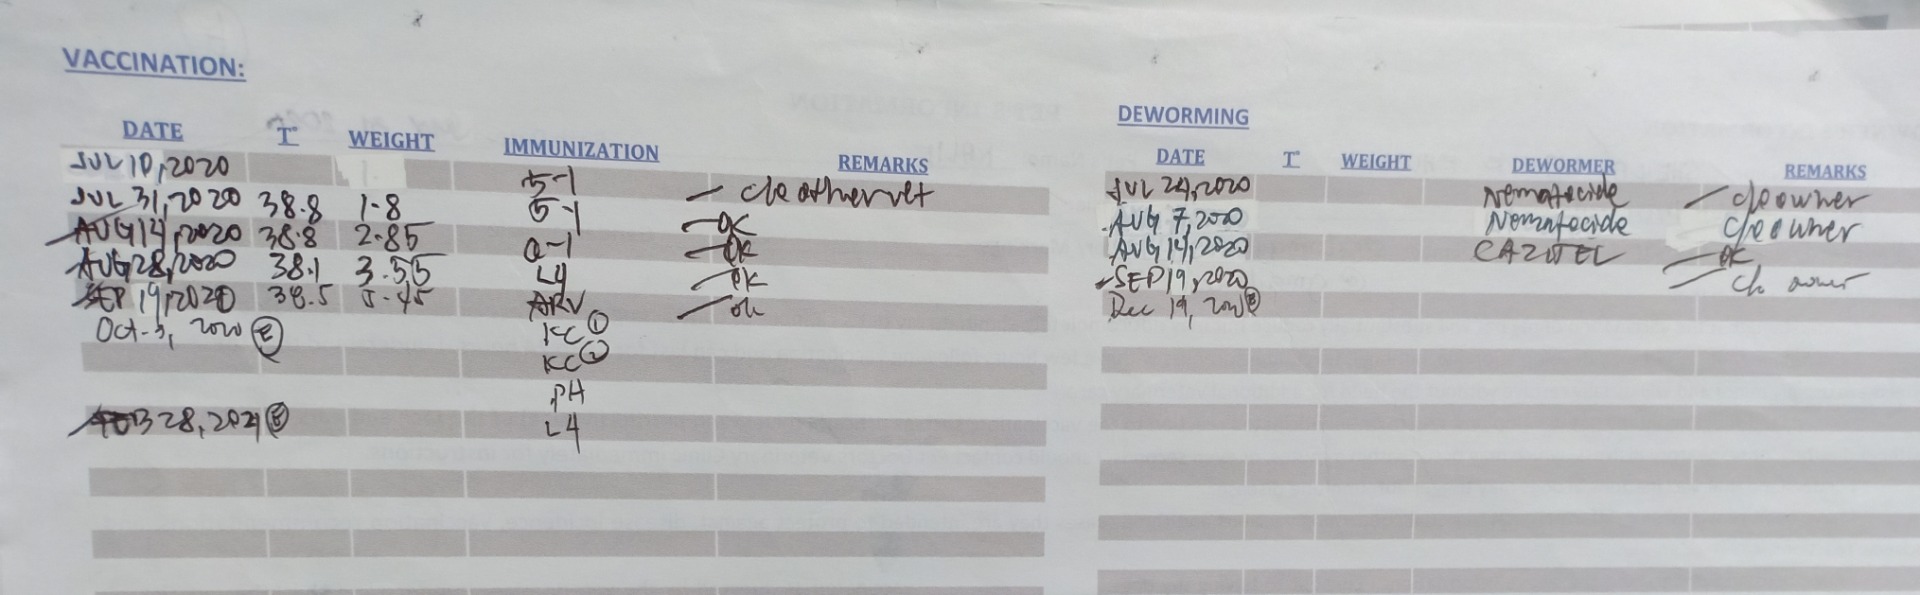 VACCINATION:
DATE T° WEIGHT IMMUNIZATION REMARKS
JUL 10, 2020 5-1 - c/o other vet
JUL 31, 2020 38.8 1.8 5-1 - OK
AUG 14, 2020 38.8 2.85 - OK
AUG 28, 2020 38.1 3.55 L4 - OK
SEP 19, 2020 38.5 5.45 ARV - ok
Oct. 3, 2020 Ⓔ KC ①
KC ②
PH
FEB 28, 2021 Ⓔ L4
DEWORMING
DATE T° WEIGHT DEWORMER REMARKS
JUL 24, 2020 Nematocide - c/o owner
AUG 7, 2020 Nematocide c/o owner
AUG 14, 2020 CAZITEL - OK
SEP 19, 2020 - c/o owner
Dec 19, 2020 Ⓔ